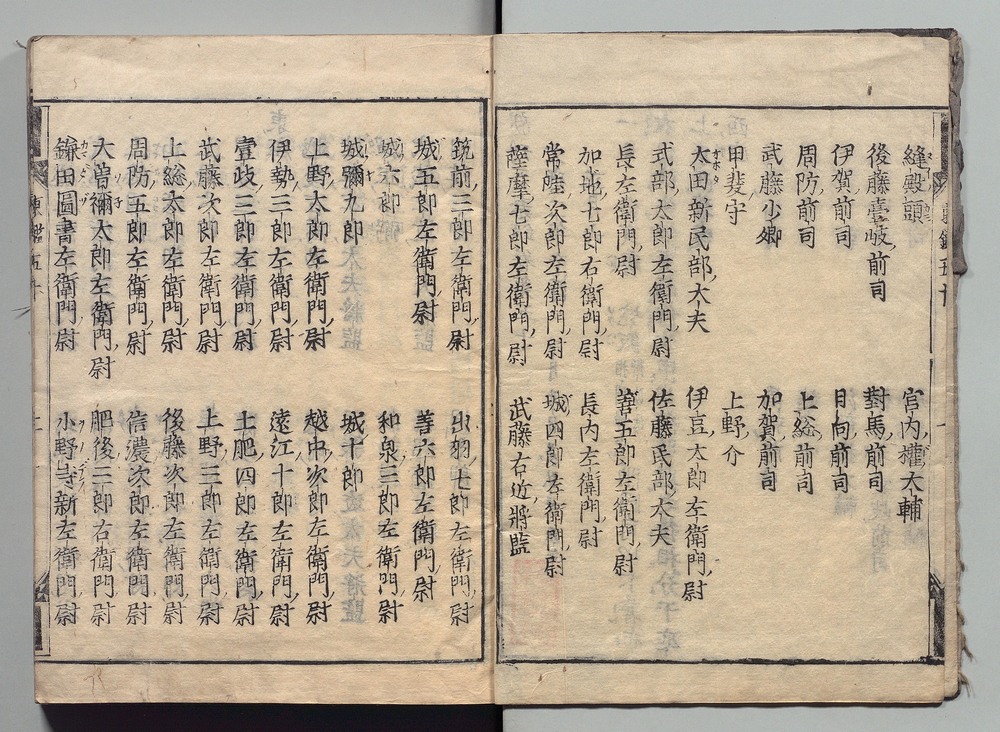 縫殿頭 宮内權大輔
後藤壹岐前司 對馬前司
伊賀前司 日向前司
周防前司 上総前司
武藤少卿 加賀前司
甲斐守 上野介
太田新民部大夫 伊豆太郎左衛門尉
式部太郎左衛門尉 佐藤民部大夫
長左衛門尉 善五郎左衛門尉
加地七郎右衛門尉 長内左衛門尉
常陸次郎左衛門尉 城四郎左衛門尉
薩摩七郎左衛門尉 武藤右近將監
筑前三郎左衛門尉 出羽七郎左衛門尉
城五郎左衛門尉 善六郎左衛門尉
城六郎 和泉三郎左衛門尉
城彌九郎 城十郎
上野太郎左衛門尉 越中次郎左衛門尉
伊勢三郎左衛門尉 遠江十郎左衛門尉
壹岐三郎左衛門尉 土肥四郎左衛門尉
武藤次郎左衛門尉 上野三郎左衛門尉
上総太郎左衛門尉 後藤次郎左衛門尉
周防五郎左衛門尉 信濃次郎左衛門尉
大曽禰太郎左衛門尉 肥後三郎右衛門尉
鎌田圖書左衛門尉 小野寺新左衛門尉
東鑑五十